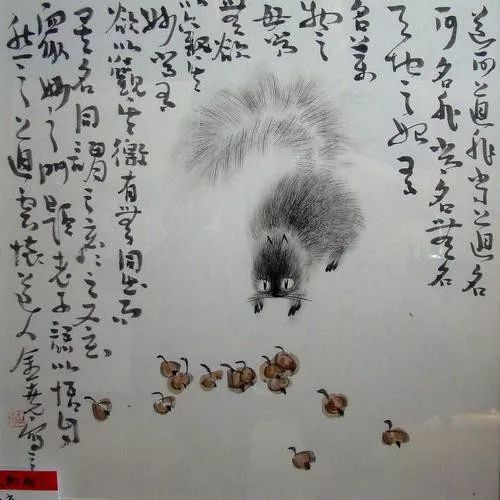 道可道非常道名
可名非常名無名
天地之始有
名萬
物之
母常
無欲
以觀其
妙常有
欲以觀其徼有無同出而
異名同謂之玄玄之又玄
眾妙之門題老子語以悟自
然之道雲懷道人金寫之